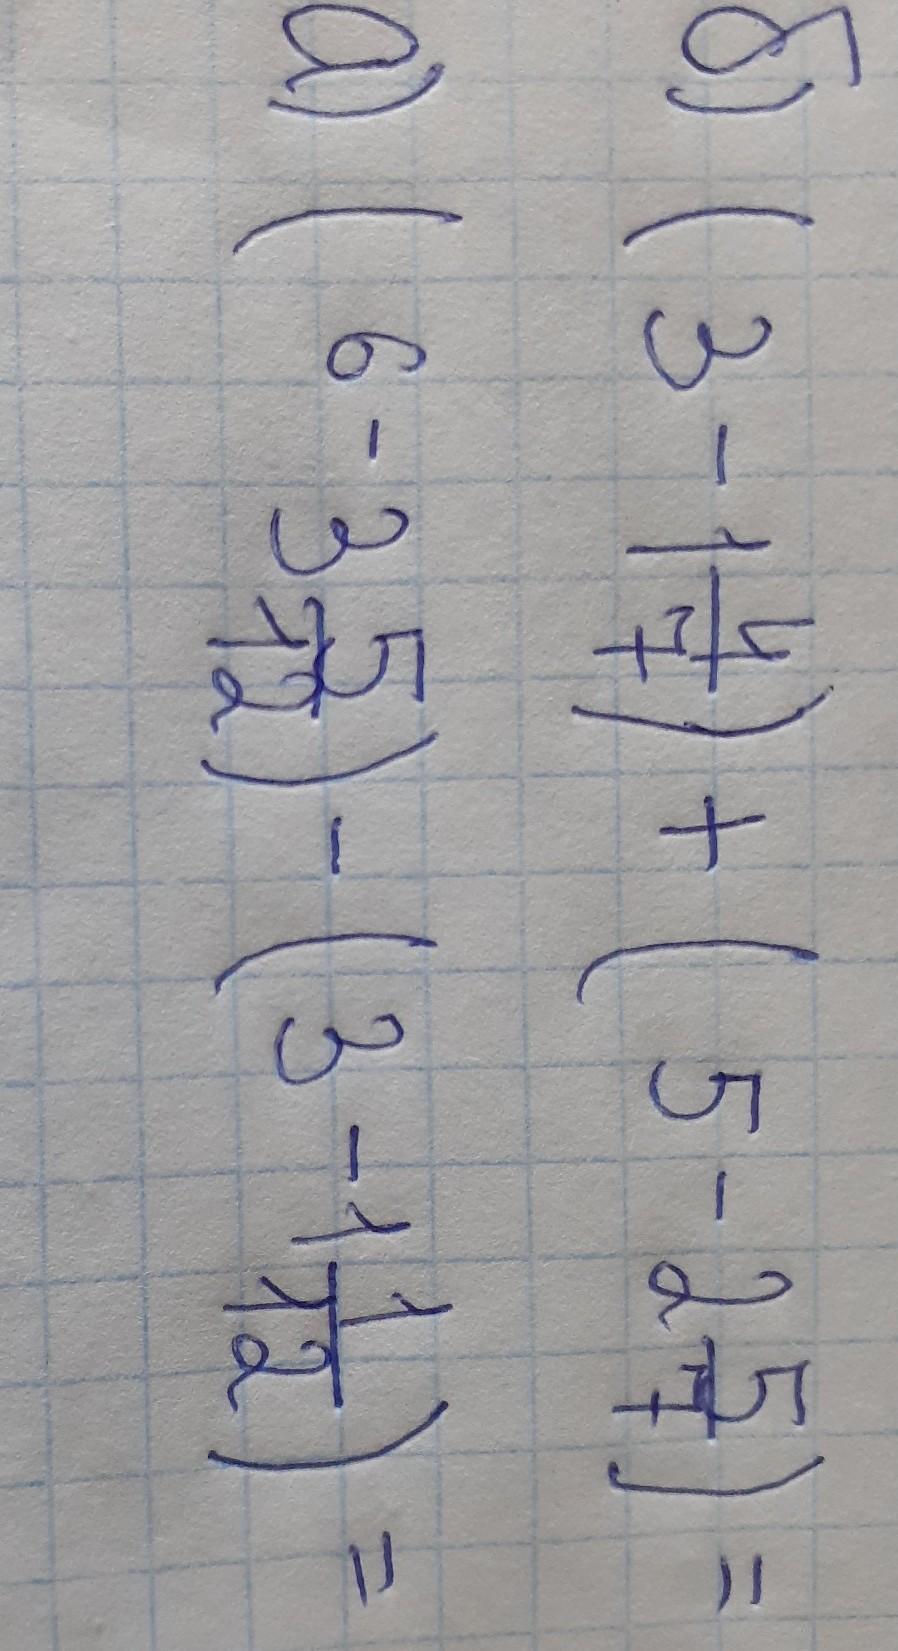 б) (3 - 1 4/7) + (5 - 2 5/7) =
а) (6 - 3 5/12) - (3 - 1 1/12) =